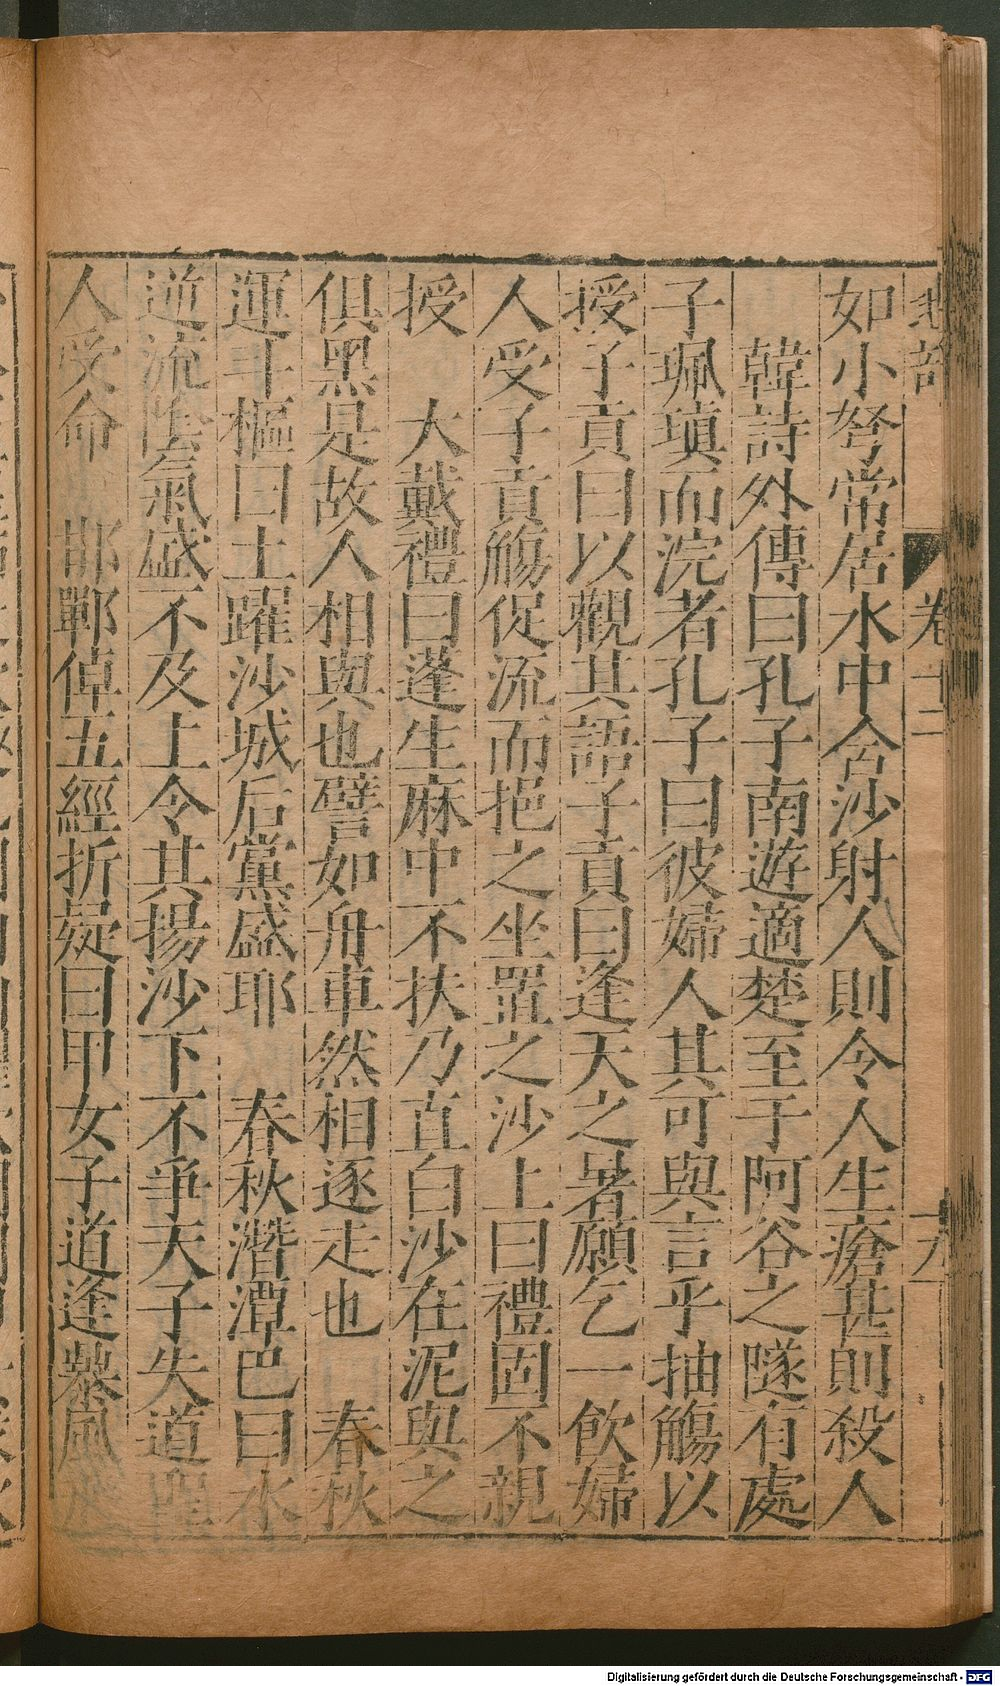 卷十二
十九
如小弩常居水中含沙射人則令人生瘡甚則殺人
韓詩外傳曰孔子南遊適楚至于阿谷之隧有處
子珮瑱而浣者孔子曰彼婦人其可與言乎抽觴以
授子貢曰以觀其語子貢曰逢天之暑願乞一飲婦
人受子貢觴促流而挹之坐置之沙上曰禮固不親
授　大戴禮曰蓬生麻中不扶乃直白沙在泥與之
俱黑是故人相與也譬如舟車然相逐走也　春秋
運斗樞曰土躍沙城后黨盛耶　春秋潛潭巴曰水
逆流陰氣盛不及上令其揚沙下不爭天子失道
人受命　邯鄲倬五經折疑曰甲女子道逢暴風
Digitalisierung gefördert durch die Deutsche Forschungsgemeinschaft - DFG